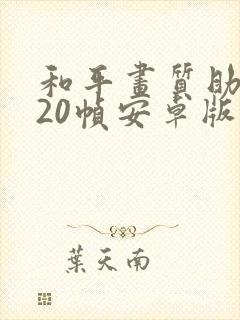 和平畫質助
20幀安卓版
葉天南